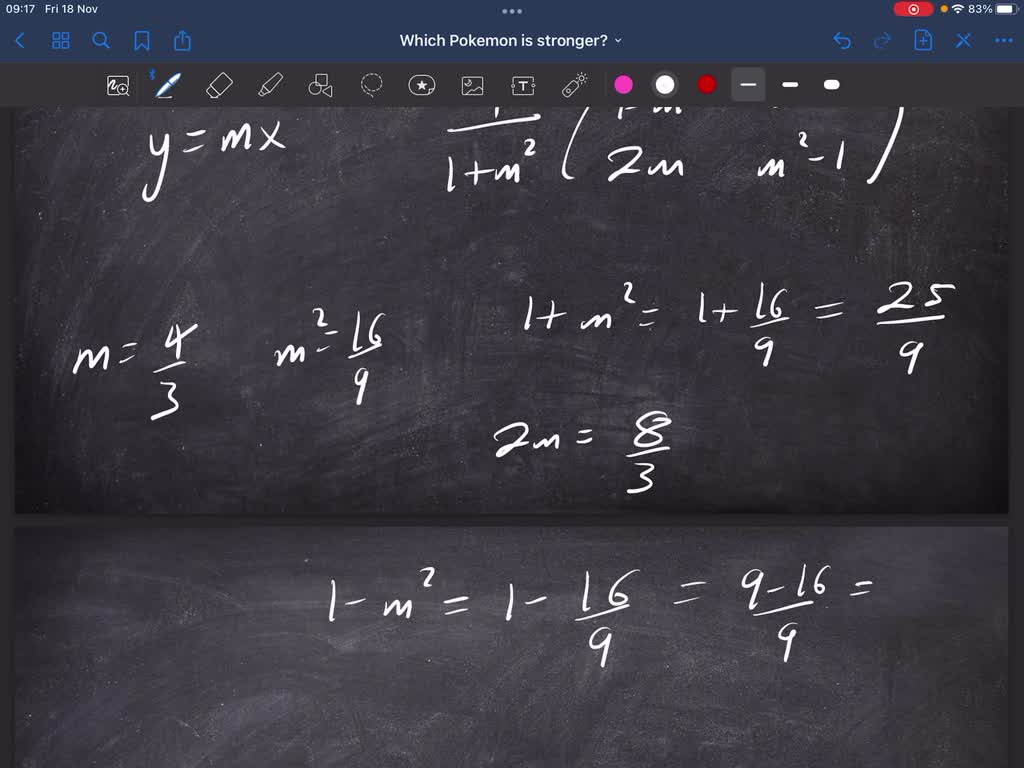 09:17 Fri 18 Nov
83%
Which Pokemon is stronger?
T
y = mx
1+m² ( 2m m²-1 )
m = 4/3 m² = 16/9 1+m² = 1+16/9 = 25/9
2m = 8/3
1-m² = 1-16/9 = 9-16/9 =